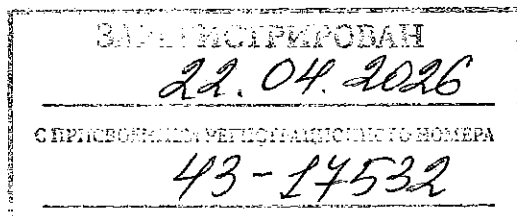 ЗАРЕГИСТРИРОВАН
22.04.2026
С ПРИСВОЕНИЕМ РЕГИСТРАЦИОННОГО НОМЕРА
43-17532